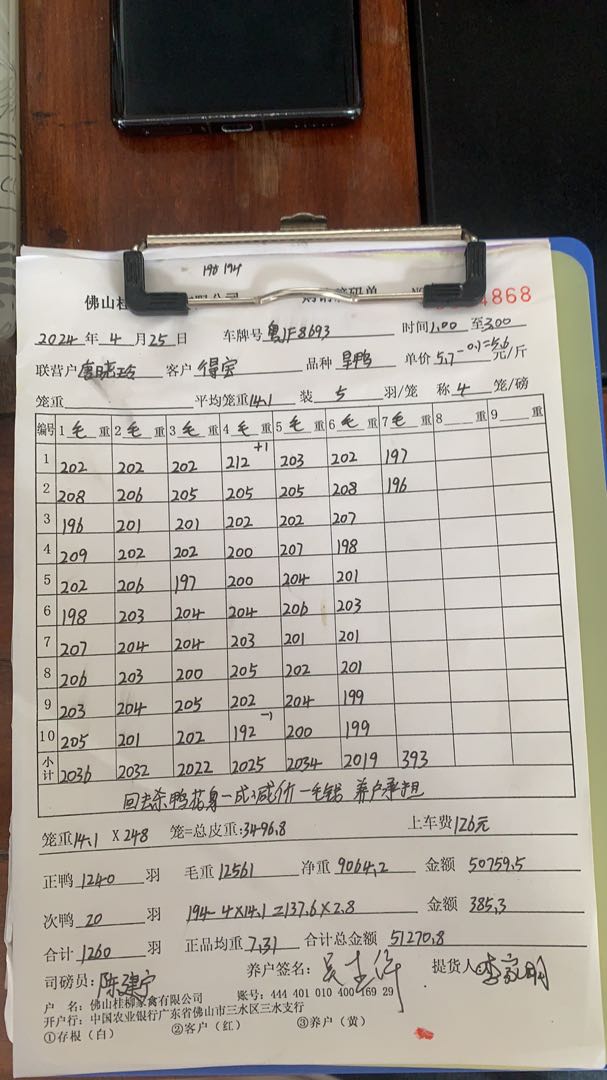 190 194
佛山桂 4868
2024 年 4 月 25 日 车牌号 粤JF8693 时间 1.00 至 3.00
联营户 唐晓玲 客户 得宝 品种 旱鸭 单价 5.7-0.1=5.6 元/斤
笼重 平均笼重 14.1 装 5 羽/笼 称 4 笼/磅
编号 1 毛 重 2 毛 重 3 毛 重 4 毛 重 5 毛 重 6 毛 重 7 毛 重 8 重 9 重
1 202 202 202 212 +1 203 202 197
2 208 206 205 205 205 208 196
3 196 201 201 202 202 207
4 209 202 202 200 207 198
5 202 206 197 200 204 201
6 198 203 204 204 206 203
7 207 204 204 203 201 201
8 206 203 200 205 202 201
9 203 204 205 202 204 199
10 205 201 202 192 -1 200 199
小计 2036 2032 2022 2025 2034 2019 393
回去杀鸭花身一成减价一毛钱 养户承担
笼重 14.1 X 248 笼=总皮重: 3496.8 上车费 126元
正鸭 1240 羽 毛重 12561 净重 9064.2 金额 50759.5
次鸭 20 羽 194-4X14.1=137.6X2.8 金额 385.3
合计 1260 羽 正品均重 7.31 合计总金额 51270.8
司磅员: 陈建宁 养户签名: 提货人: 李家明
户 名: 佛山桂柳家禽有限公司 账号: 444 401 010 400 169 29
开户行: 中国农业银行广东省佛山市三水区三水支行
①存根（白） ②客户（红） ③养户（黄）